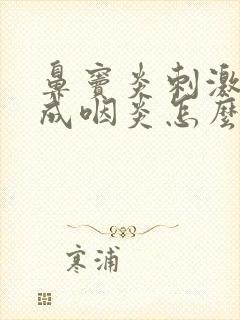 鼻窦炎刺激
成咽炎怎麼
寒浦